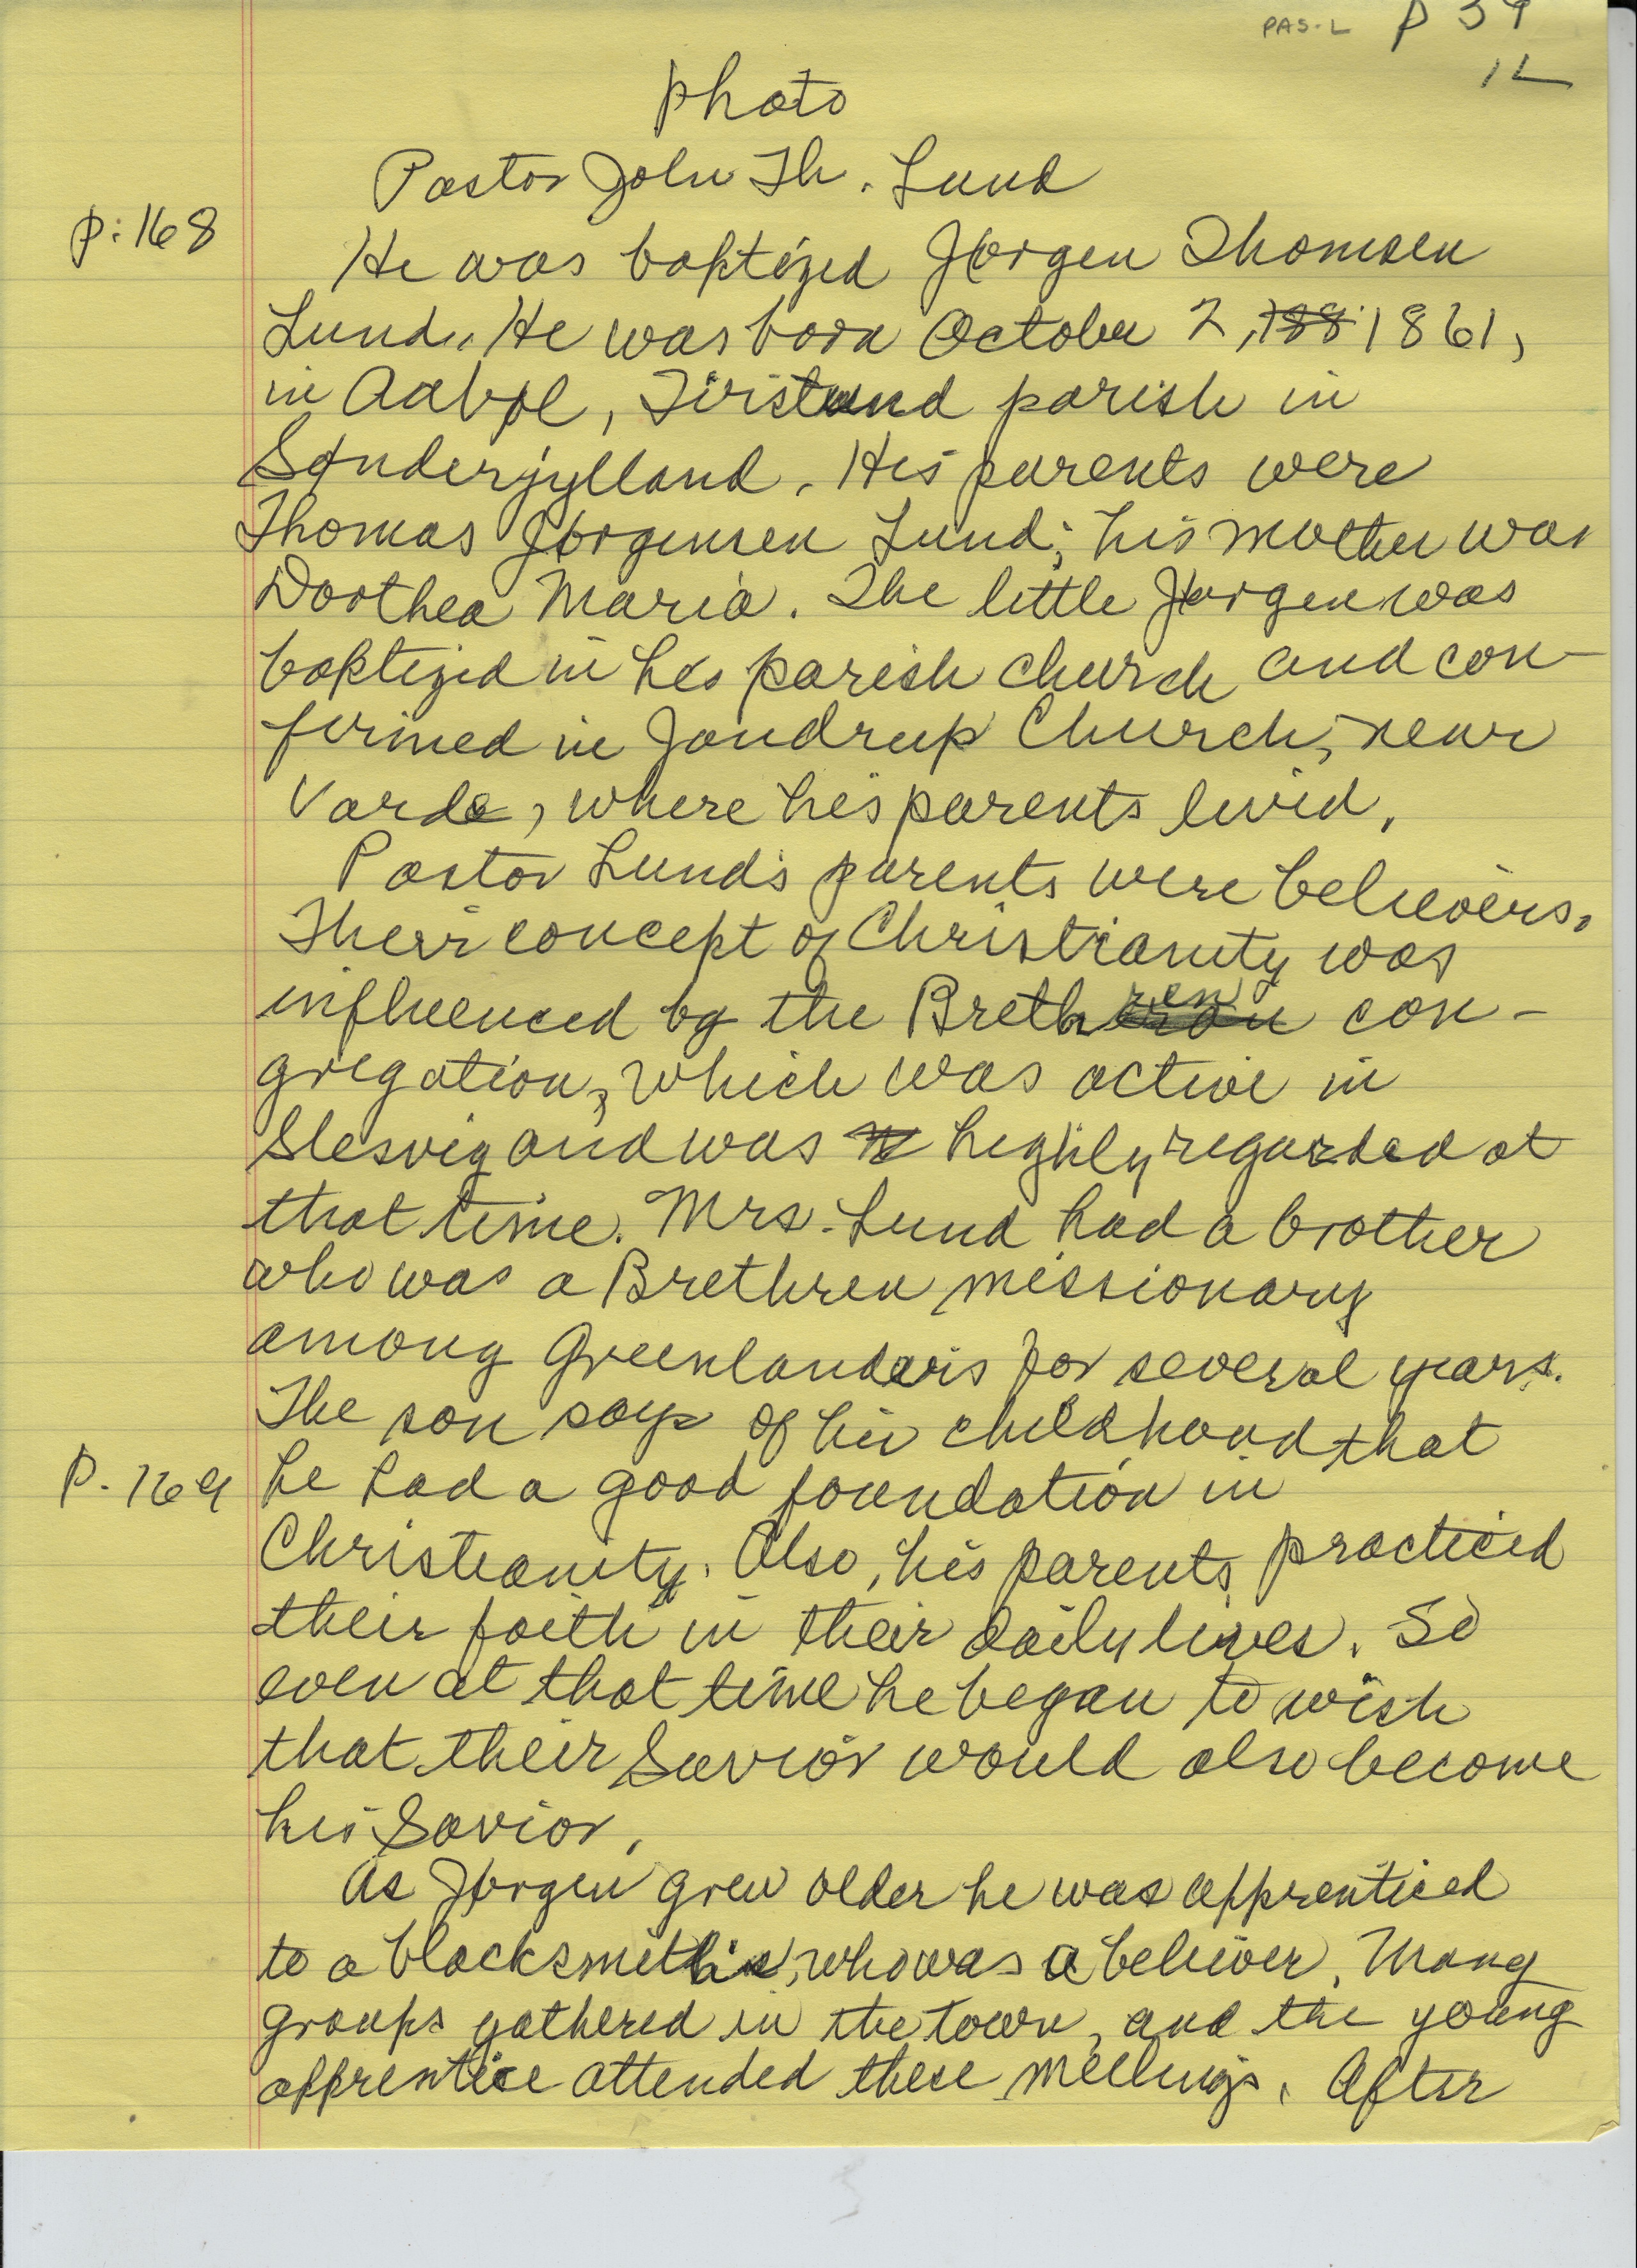 PAS-L p 39
1L
photo
Pastor John Th. Lund
p. 168
He was baptized Jørgen Thomsen
Lund. He was born October 2, 188 1861,
in Aabøl, Tirstund parish in
Sønderjylland. His parents were
Thomas Jørgensen Lund; his mother was
Dorthea Maria. The little Jørgen was
baptized in his parish church and con-
firmed in Jandrup Church, near
Varde, where his parents lived.
Pastor Lund's parents were believers.
Their concept of Christianity was
influenced by the Brethren con-
gregation, which was active in
Slesvig and was highly regarded at
that time. Mrs. Lund had a brother
who was a Brethren missionary
among Greenlanders for several years.
The son says of his childhood that
P. 169 he had a good foundation in
Christianity. Also, his parents practiced
their faith in their daily lives. So
even at that time he began to wish
that their Savior would also become
his Savior.
As Jørgen grew older he was apprenticed
to a blacksmith, who was a believer. Many
groups gathered in the town, and the young
apprentice attended these meetings. After